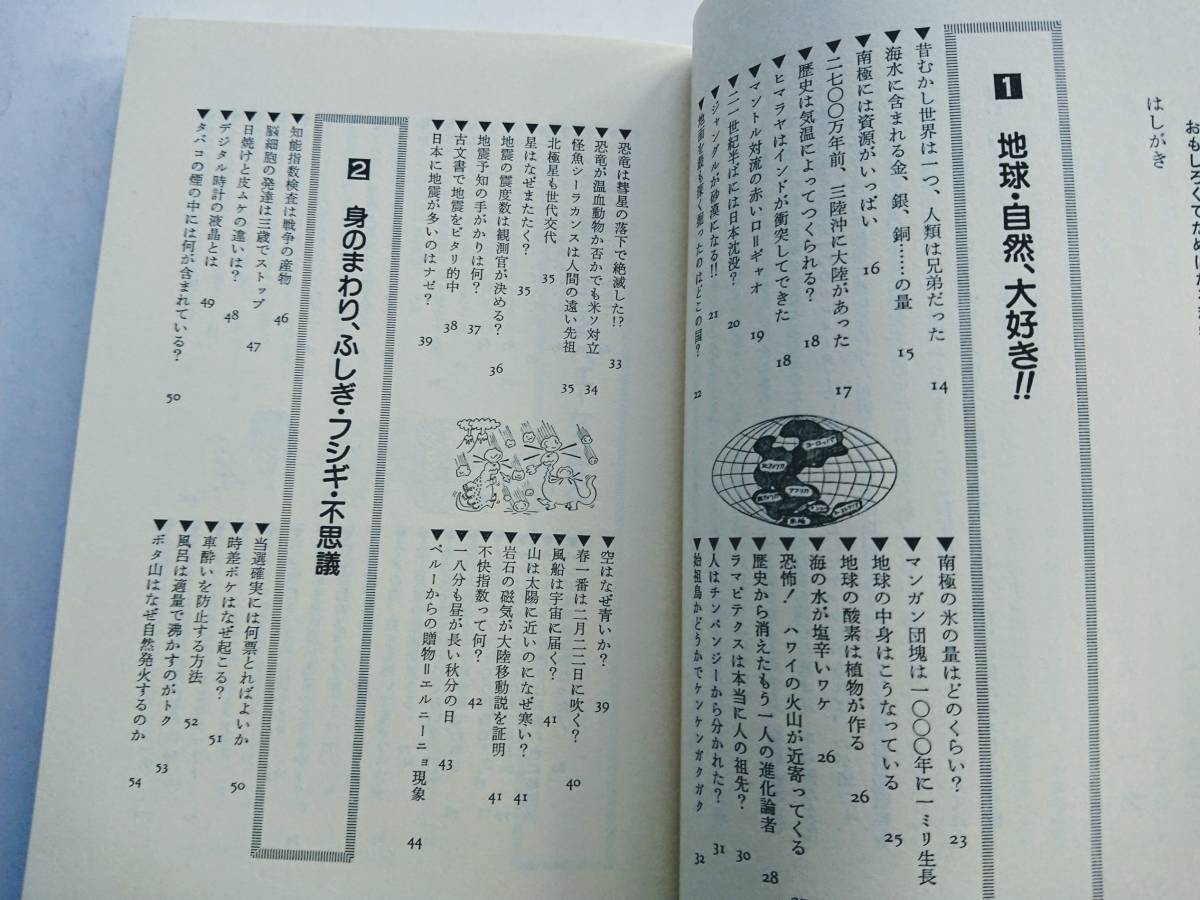 はしがき
1 地球・自然、大好き!!
▼昔むかし世界は一つ、人類は兄弟だった 14
▼海水に含まれる金、銀、銅……の量 15
▼南極には資源がいっぱい 16
▼二七〇〇万年前、三陸沖に大陸があった 17
▼歴史は気温によってつくられる? 18
▼ヒマラヤはインドが衝突してできた 18
▼マントル対流の赤い口=ギャオ 19
▼二一世紀半ばには日本沈没? 20
▼ジャングルが砂漠になる!! 21
▼地面を最も深く掘ったのはどこの国? 22
ヨーロッパ
北アメリカ
南アメリカ
アフリカ
インド
オーストラリア
南極
▼南極の氷の量はどのくらい? 23
▼マンガン団塊は一〇〇〇年に一ミリ生長
▼地球の中身はこうなっている 25
▼地球の酸素は植物が作る 26
▼海の水が塩辛いワケ 26
▼恐怖! ハワイの火山が近寄ってくる 27
▼歴史から消えたもう一人の進化論者 28
▼ラマピテクスは本当に人の祖先? 30
▼人はチンパンジーから分かれた? 31
▼始祖鳥かどうかでケンケンガクガク 32
▼恐竜は彗星の落下で絶滅した!? 33
▼恐竜が温血動物か否かでも米ソ対立 34
▼怪魚シーラカンスは人間の遠い先祖 35
▼北極星も世代交代 35
▼星はなぜまたたく? 35
▼地震の震度数は観測官が決める? 36
▼地震予知の手がかりは何? 37
▼古文書で地震をピタリ的中 38
▼日本に地震が多いのはナゼ? 39
▼空はなぜ青いか? 39
▼春一番は二月二二日に吹く? 40
▼風船は宇宙に届く? 41
▼山は太陽に近いのになぜ寒い? 41
▼岩石の磁気が大陸移動説を証明 41
▼不快指数って何? 42
▼一八分も昼が長い秋分の日 43
▼ペルーからの贈物=エルニーニョ現象 44
2 身のまわり、ふしぎ・フシギ・不思議
▼知能指数検査は戦争の産物 46
▼脳細胞の発達は三歳でストップ 47
▼日焼けと皮ムケの違いは? 48
▼デジタル時計の液晶とは 49
▼タバコの煙の中には何が含まれている? 50
▼当選確実には何票とればよいか 50
▼時差ボケはなぜ起こる? 51
▼車酔いを防止する方法 52
▼風呂は適量で沸かすのがトク 53
▼ボタ山はなぜ自然発火するのか 54